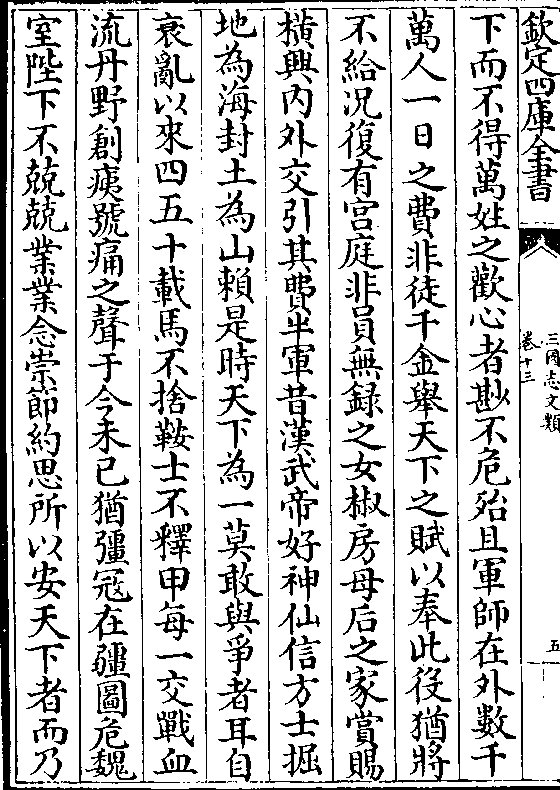 欽定四庫全書
三國志文類
卷十三
五
下而不得萬姓之歡心者尠不危殆且軍師在外數千
萬人一日之費非徒千金舉天下之賦以奉此役猶將
不給况復有宫庭非員無録之女椒房母后之家賞賜
横興内外交引其費半軍昔漢武帝好神仙信方士掘
地為海封土為山賴是時天下為一莫敢與爭者耳自
衰亂以來四五十載馬不捨鞍士不釋甲每一交戰血
流丹野創痍號痛之聲于今未已猶彊冦在疆圖危魏
室陛下不兢兢業業念崇節約思所以安天下者而乃